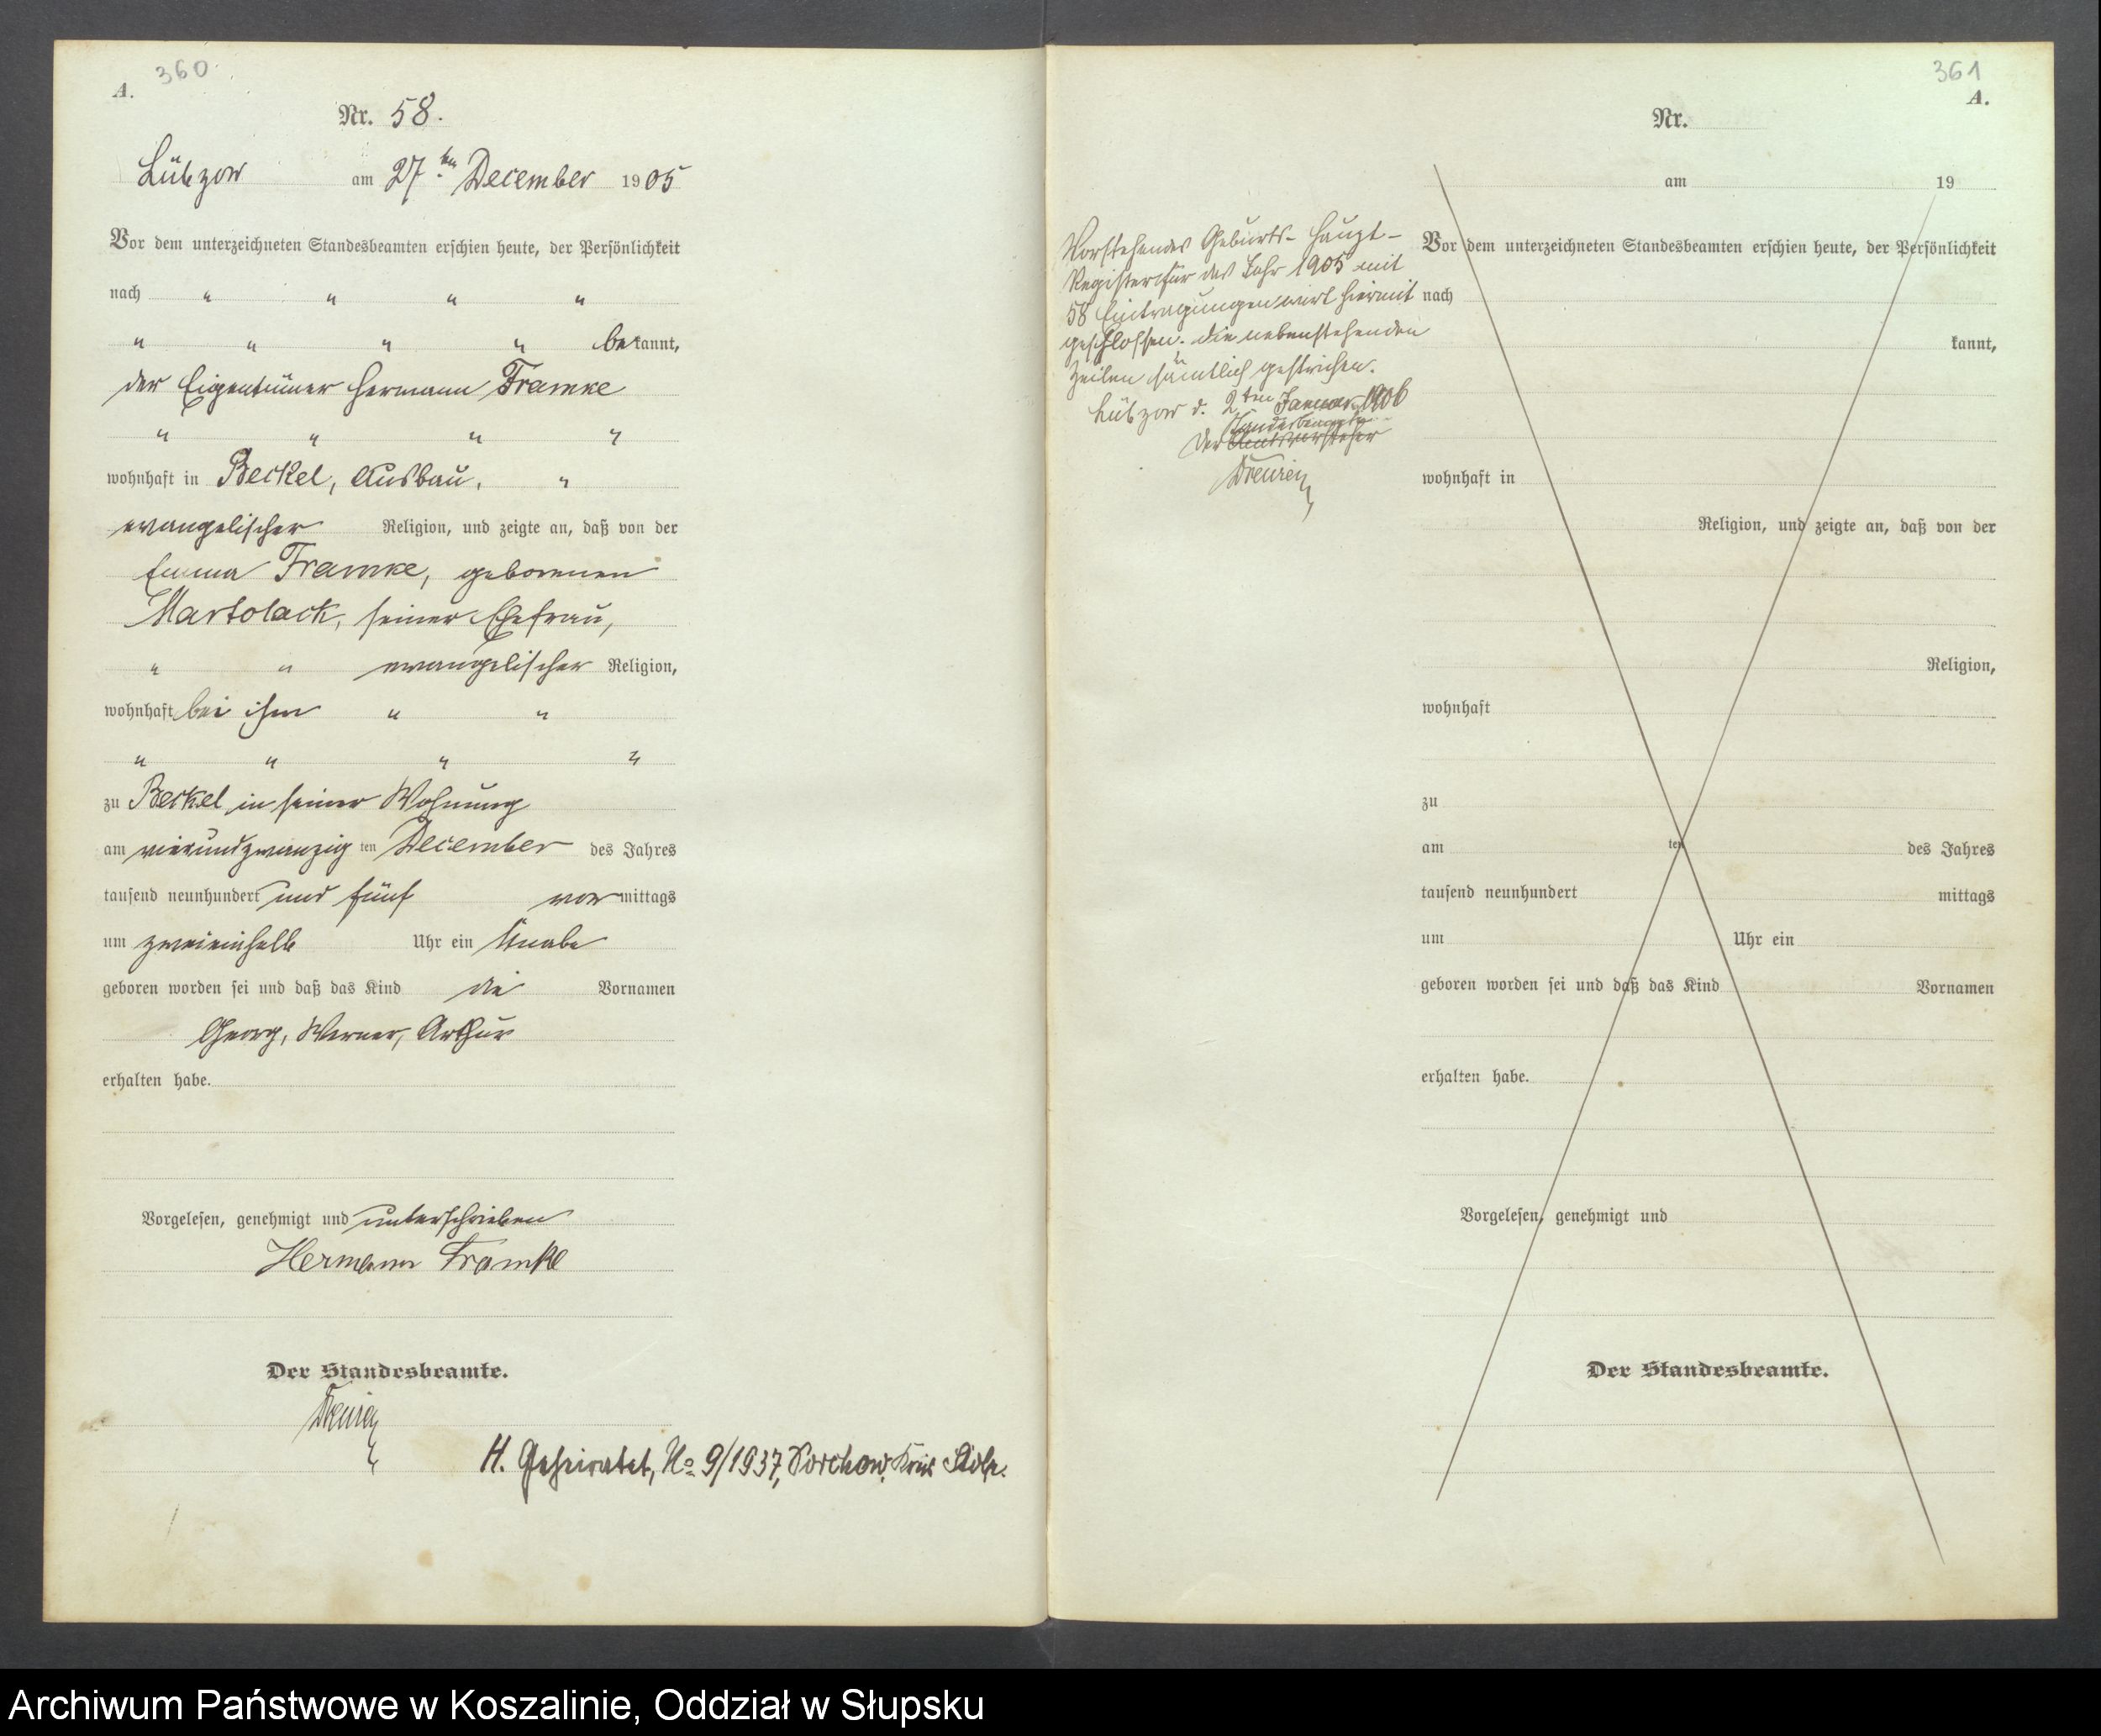 360
A.
Nr. 58.
Lübzow am 27ten December 1905
Vor dem unterzeichneten Standesbeamten erschien heute, der Persönlichkeit
nach " " " "
" " " " bekannt,
der Eigentümer Hermann Framke
" " " "
wohnhaft in Beckel, Ausbau, "
evangelischer Religion, und zeigte an, daß von der
Emma Framke, geborenen
Martolack, seiner Ehefrau,
" " evangelischer Religion,
wohnhaft bei ihm " "
" " " "
zu Beckel in seiner Wohnung
am vierundzwanzig ten December des Jahres
tausend neunhundert und fünf vormittags
um zweieinhalb Uhr ein Knabe
geboren worden sei und daß das Kind die Vornamen
Georg, Werner, Arthur
erhalten habe.
Vorgelesen, genehmigt und unterschrieben
Hermann Framke
Der Standesbeamte.
H. Geheiratet, No 9/1937, Kreis Stolp.
361
A.
Nr.
am 19
Vorstehendes Geburts-Haupt-
Register für das Jahr 1905 mit
58 Eintragungen wird hiermit
geschlossen. Die nebenstehenden
Zeilen sämtlich gestrichen.
Lübzow d. 2ten Januar 1906
Standesbeamte
Der Amtsvorsteher
Vor dem unterzeichneten Standesbeamten erschien heute, der Persönlichkeit
nach
kannt,
wohnhaft in
Religion, und zeigte an, daß von der
Religion,
wohnhaft
zu
am ten des Jahres
tausend neunhundert mittags
um Uhr ein
geboren worden sei und daß das Kind Vornamen
erhalten habe.
Vorgelesen, genehmigt und
Der Standesbeamte.
Archiwum Państwowe w Koszalinie, Oddział w Słupsku